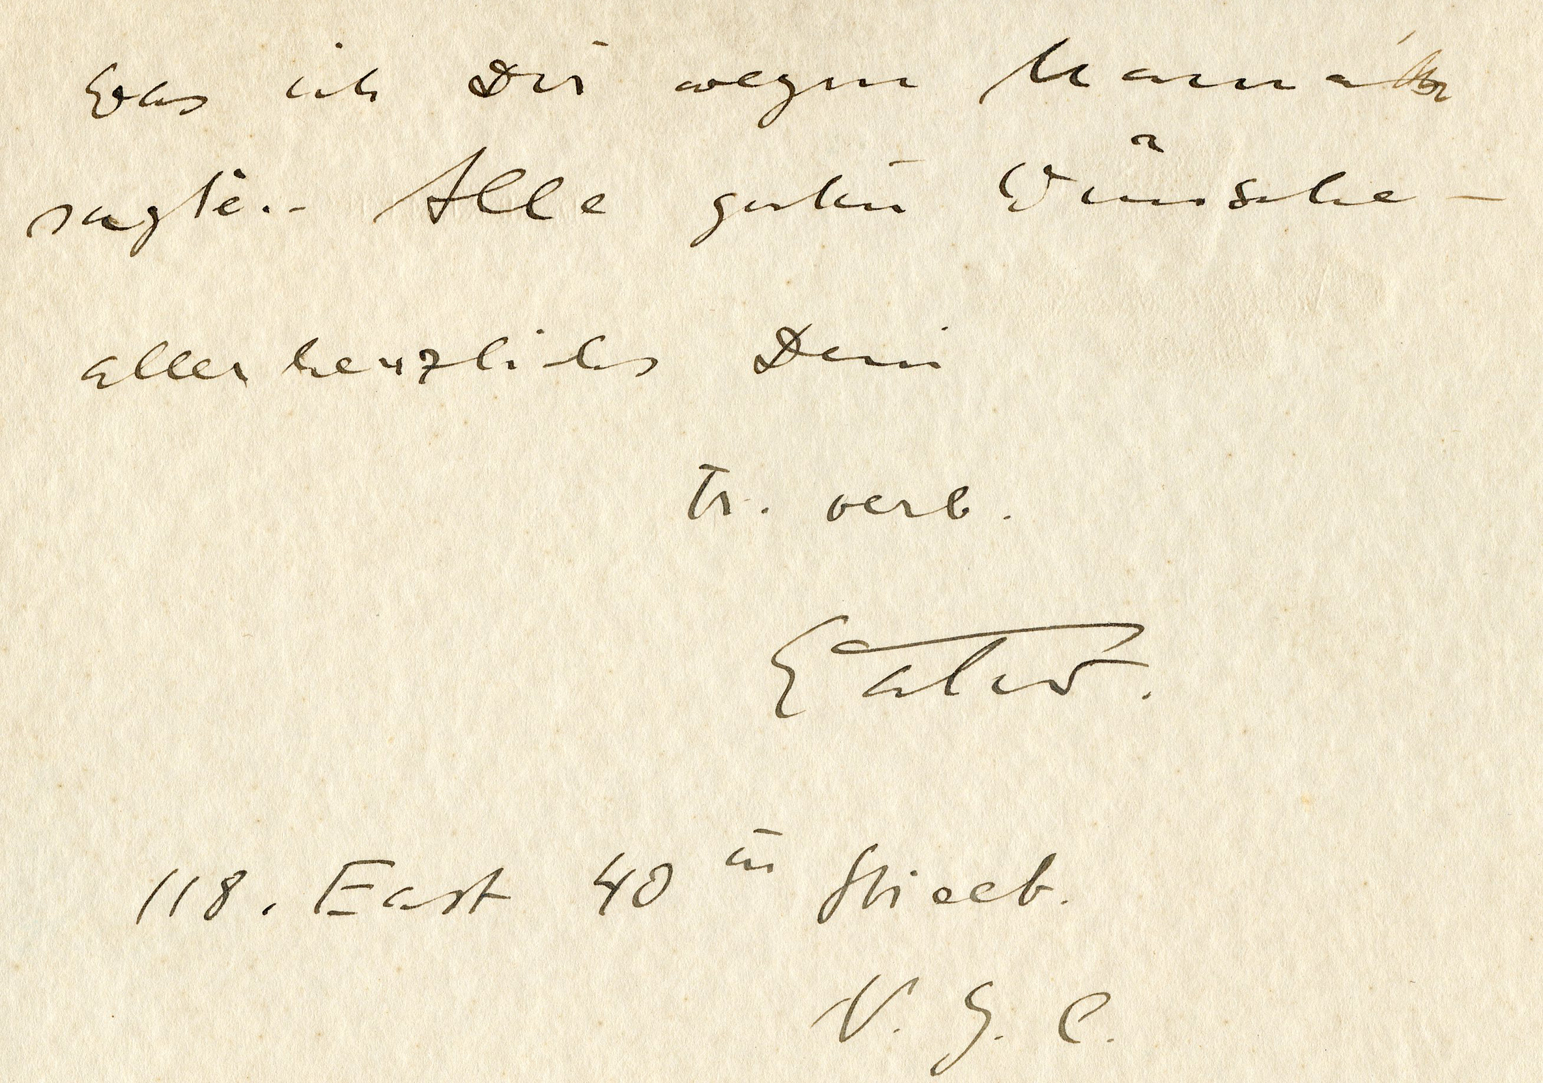 was ich Dir wegen Mama
sagte.- Alle guten Wünsche -
allerherzlichst Dein
tr. verb.
118. East 40th Street.
N. Y. C.